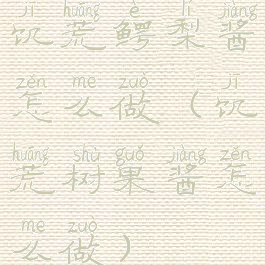 jī huāng è lí jiàng
饥荒鳄梨酱
zěn me zuò jī
怎么做（饥
huāng shù guǒ jiàng zěn
荒树果酱怎
me zuò
么做）